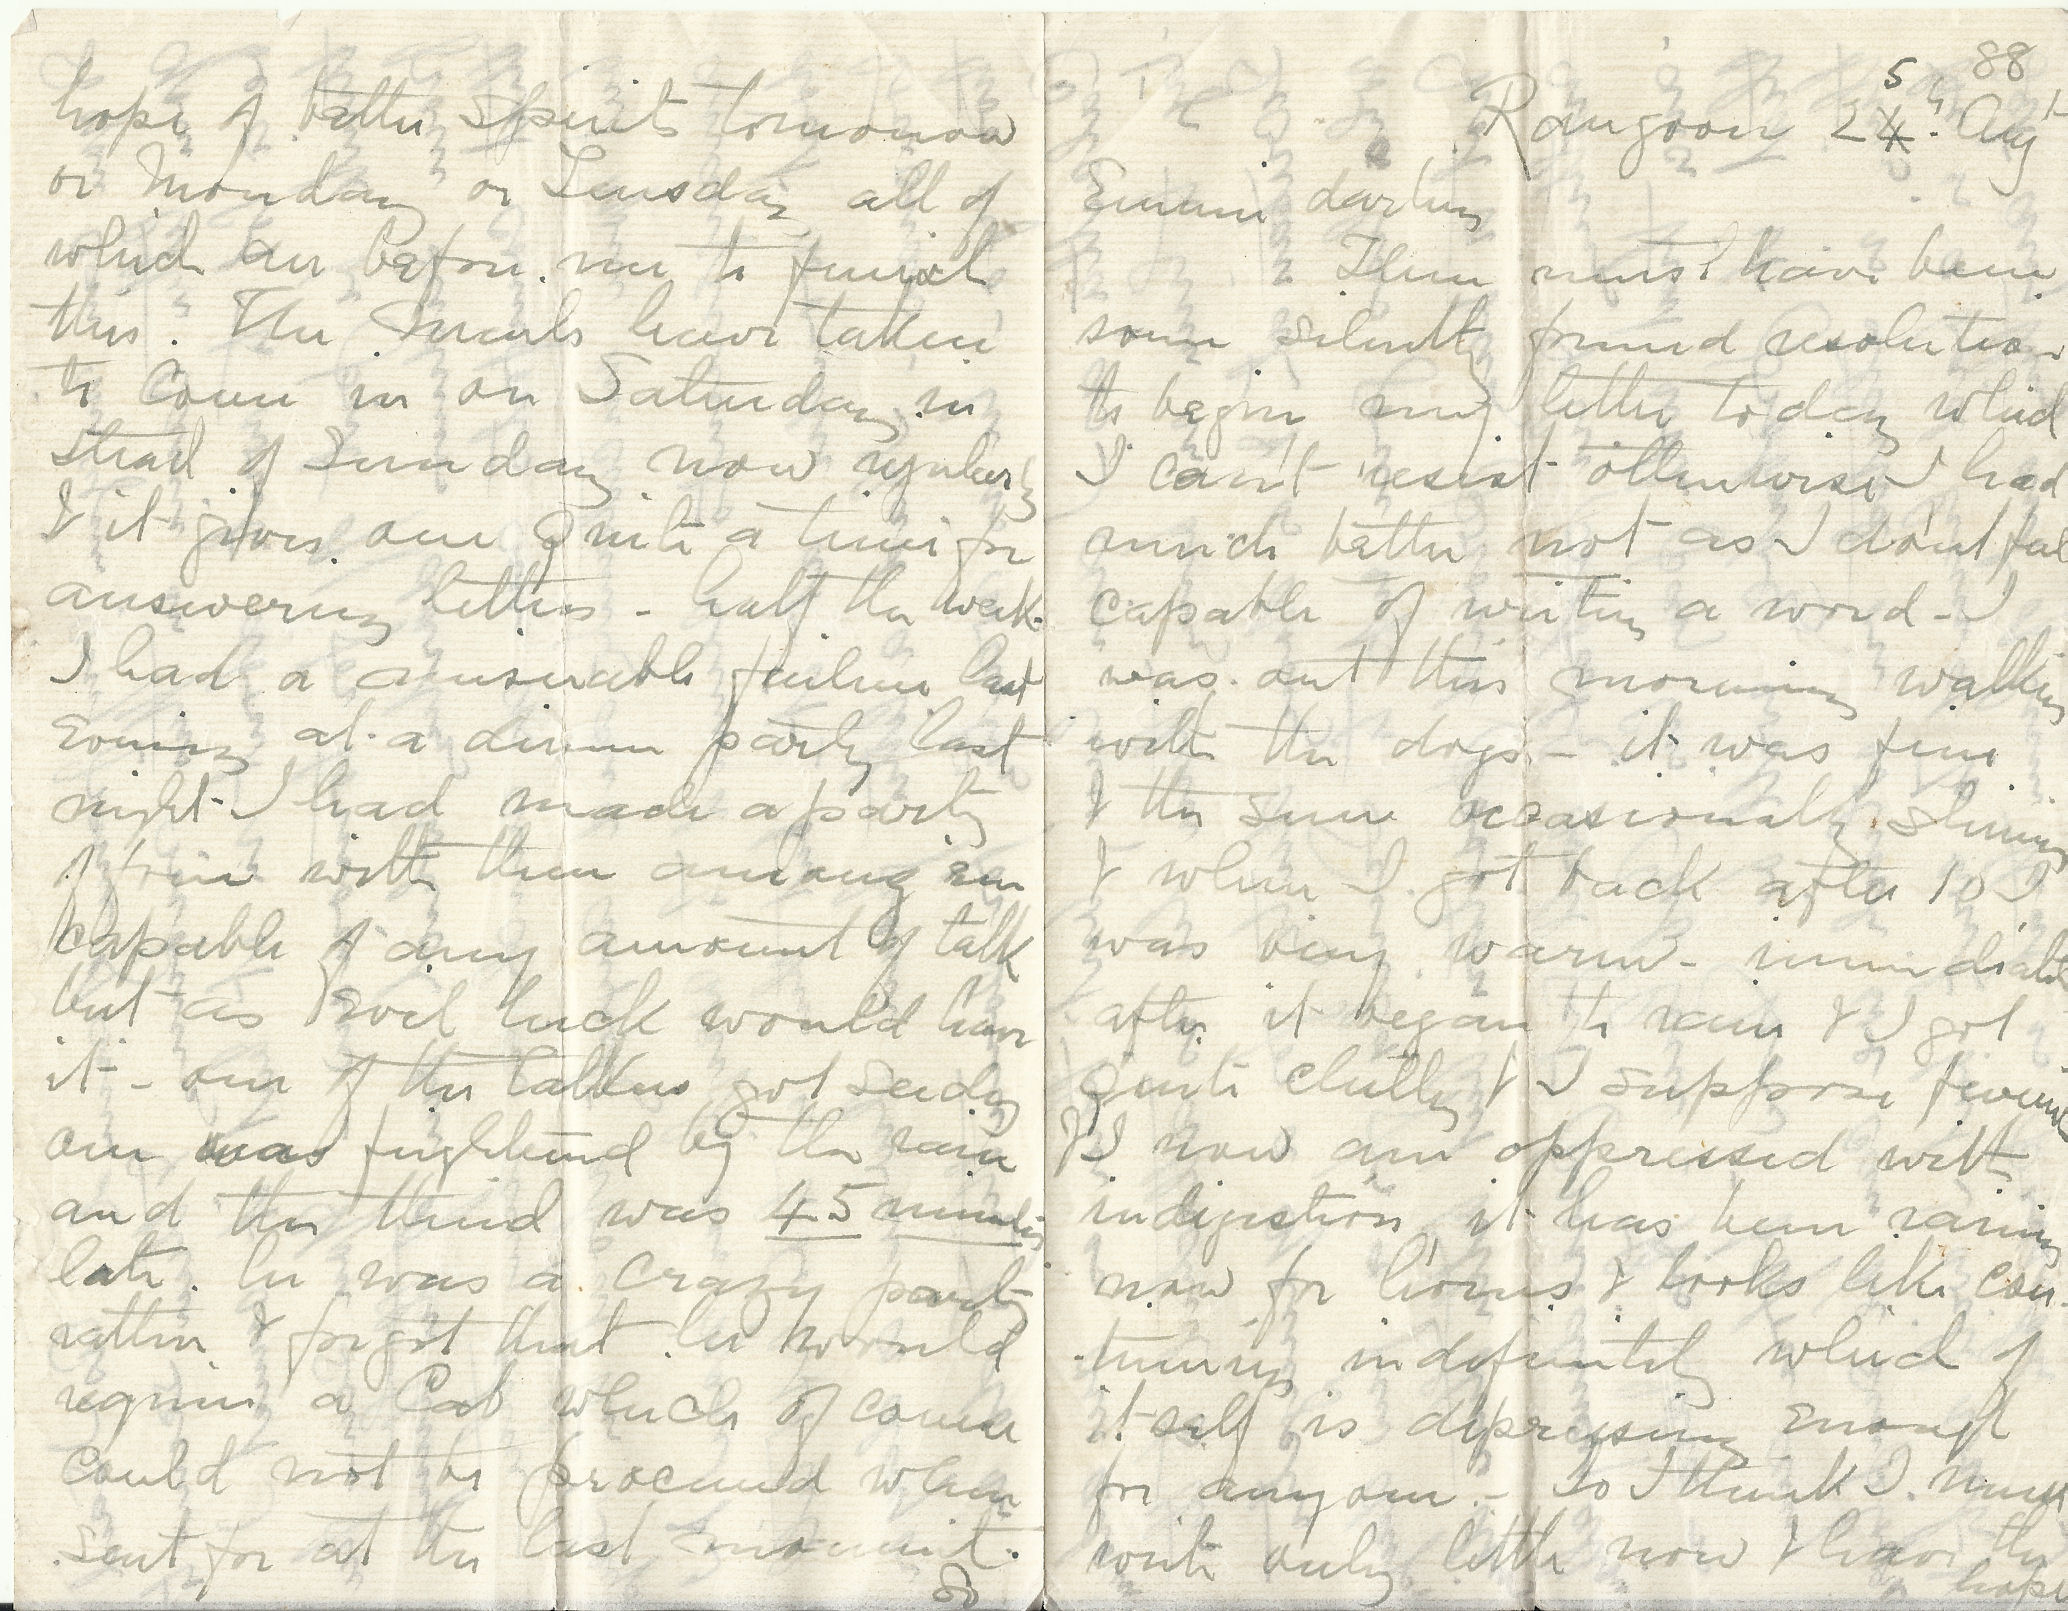 88
Rangoon 25th Augt
Emmie darling
There must have been
some silently formed resolution
to begin my letter today which
I can't resist otherwise I had
much better not as I don't feel
capable of writing a word - I
was out this morning walking
with the dogs - it was fine
& the sun occasionally shining
& when I got back after 10 I
was very warm - immediately
after it began to rain & I got
quite chilly & I suppose feverish
& I now am oppressed with
indigestion it has been raining
now for hours & looks like con
tinuing indefinitely which of
itself is depressing enough
for anyone - so I think I must
write only little now & have the
hope
hope of better spirits tomorrow
or Monday or Tuesday all of
which are before me to finish
this. The mails have taken
to come in on Saturday in
stead of Sunday now regularly
& it gives one quite a time for
answering letters - half the week.
I had a miserable failure last
evening at a dinner party last
night I had made a party
of four with them among em
capable of any amount of talk
but as evil luck would have
it - one of the talkers got seedy
one was frightened by the rain
and the third was 45 minutes
late. he was a crazy party
rather & forgot that he would
require a Cab which of course
could not be procured when
sent for at the last moment.
So